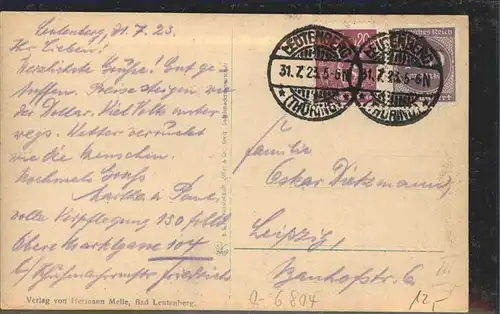 Leutenberg, 31.7.23.
Ihr Lieben!
Herzlichste Grüße! Gut ge-
troffen. Preise steigen, wie
der Dollar. Viel Volk unter
wegs. Wetter verrückt
wie die Menschen.
Nochmals Gruß
Martha u. Paul
volle Verpflegung 130
Obere Marktgasse 104
b/ Schuhmachermstr Friedrich
Verlag von Hermann Melle, Bad Leutenberg.
LEUTENBERG
31.7.23.5-6N
* (THÜRING.)
LEUTENBERG
31.7.23.5-6N
(THÜRING.)
Deutsches Reich
Familie
Oskar Dietzmann
Leipzig,
Bahnhofstr. 6
12,-